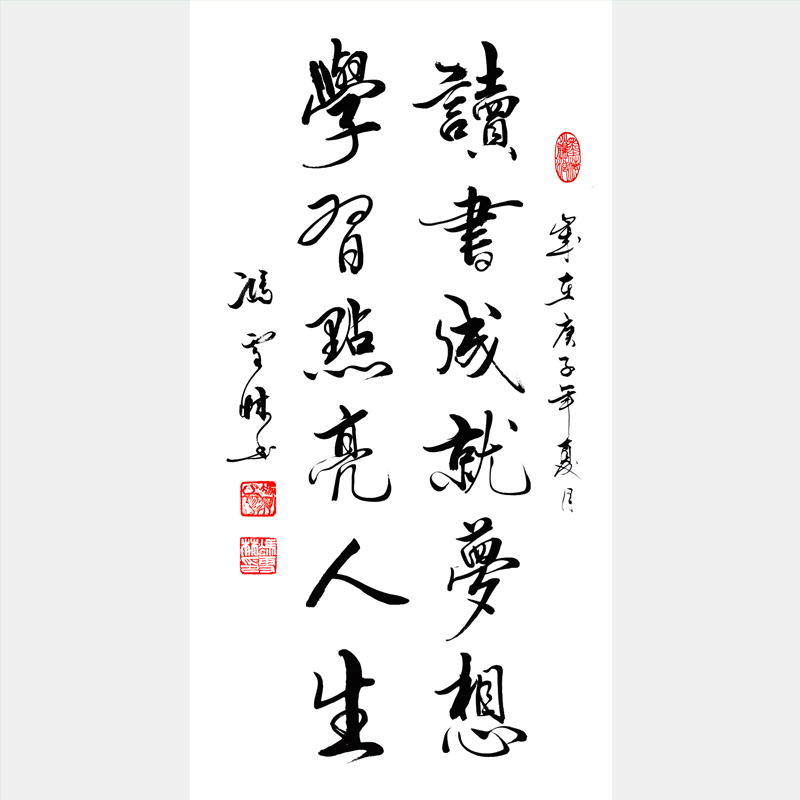 歲在庚子年夏月
讀書成就夢想
學習點亮人生
馮雪林书